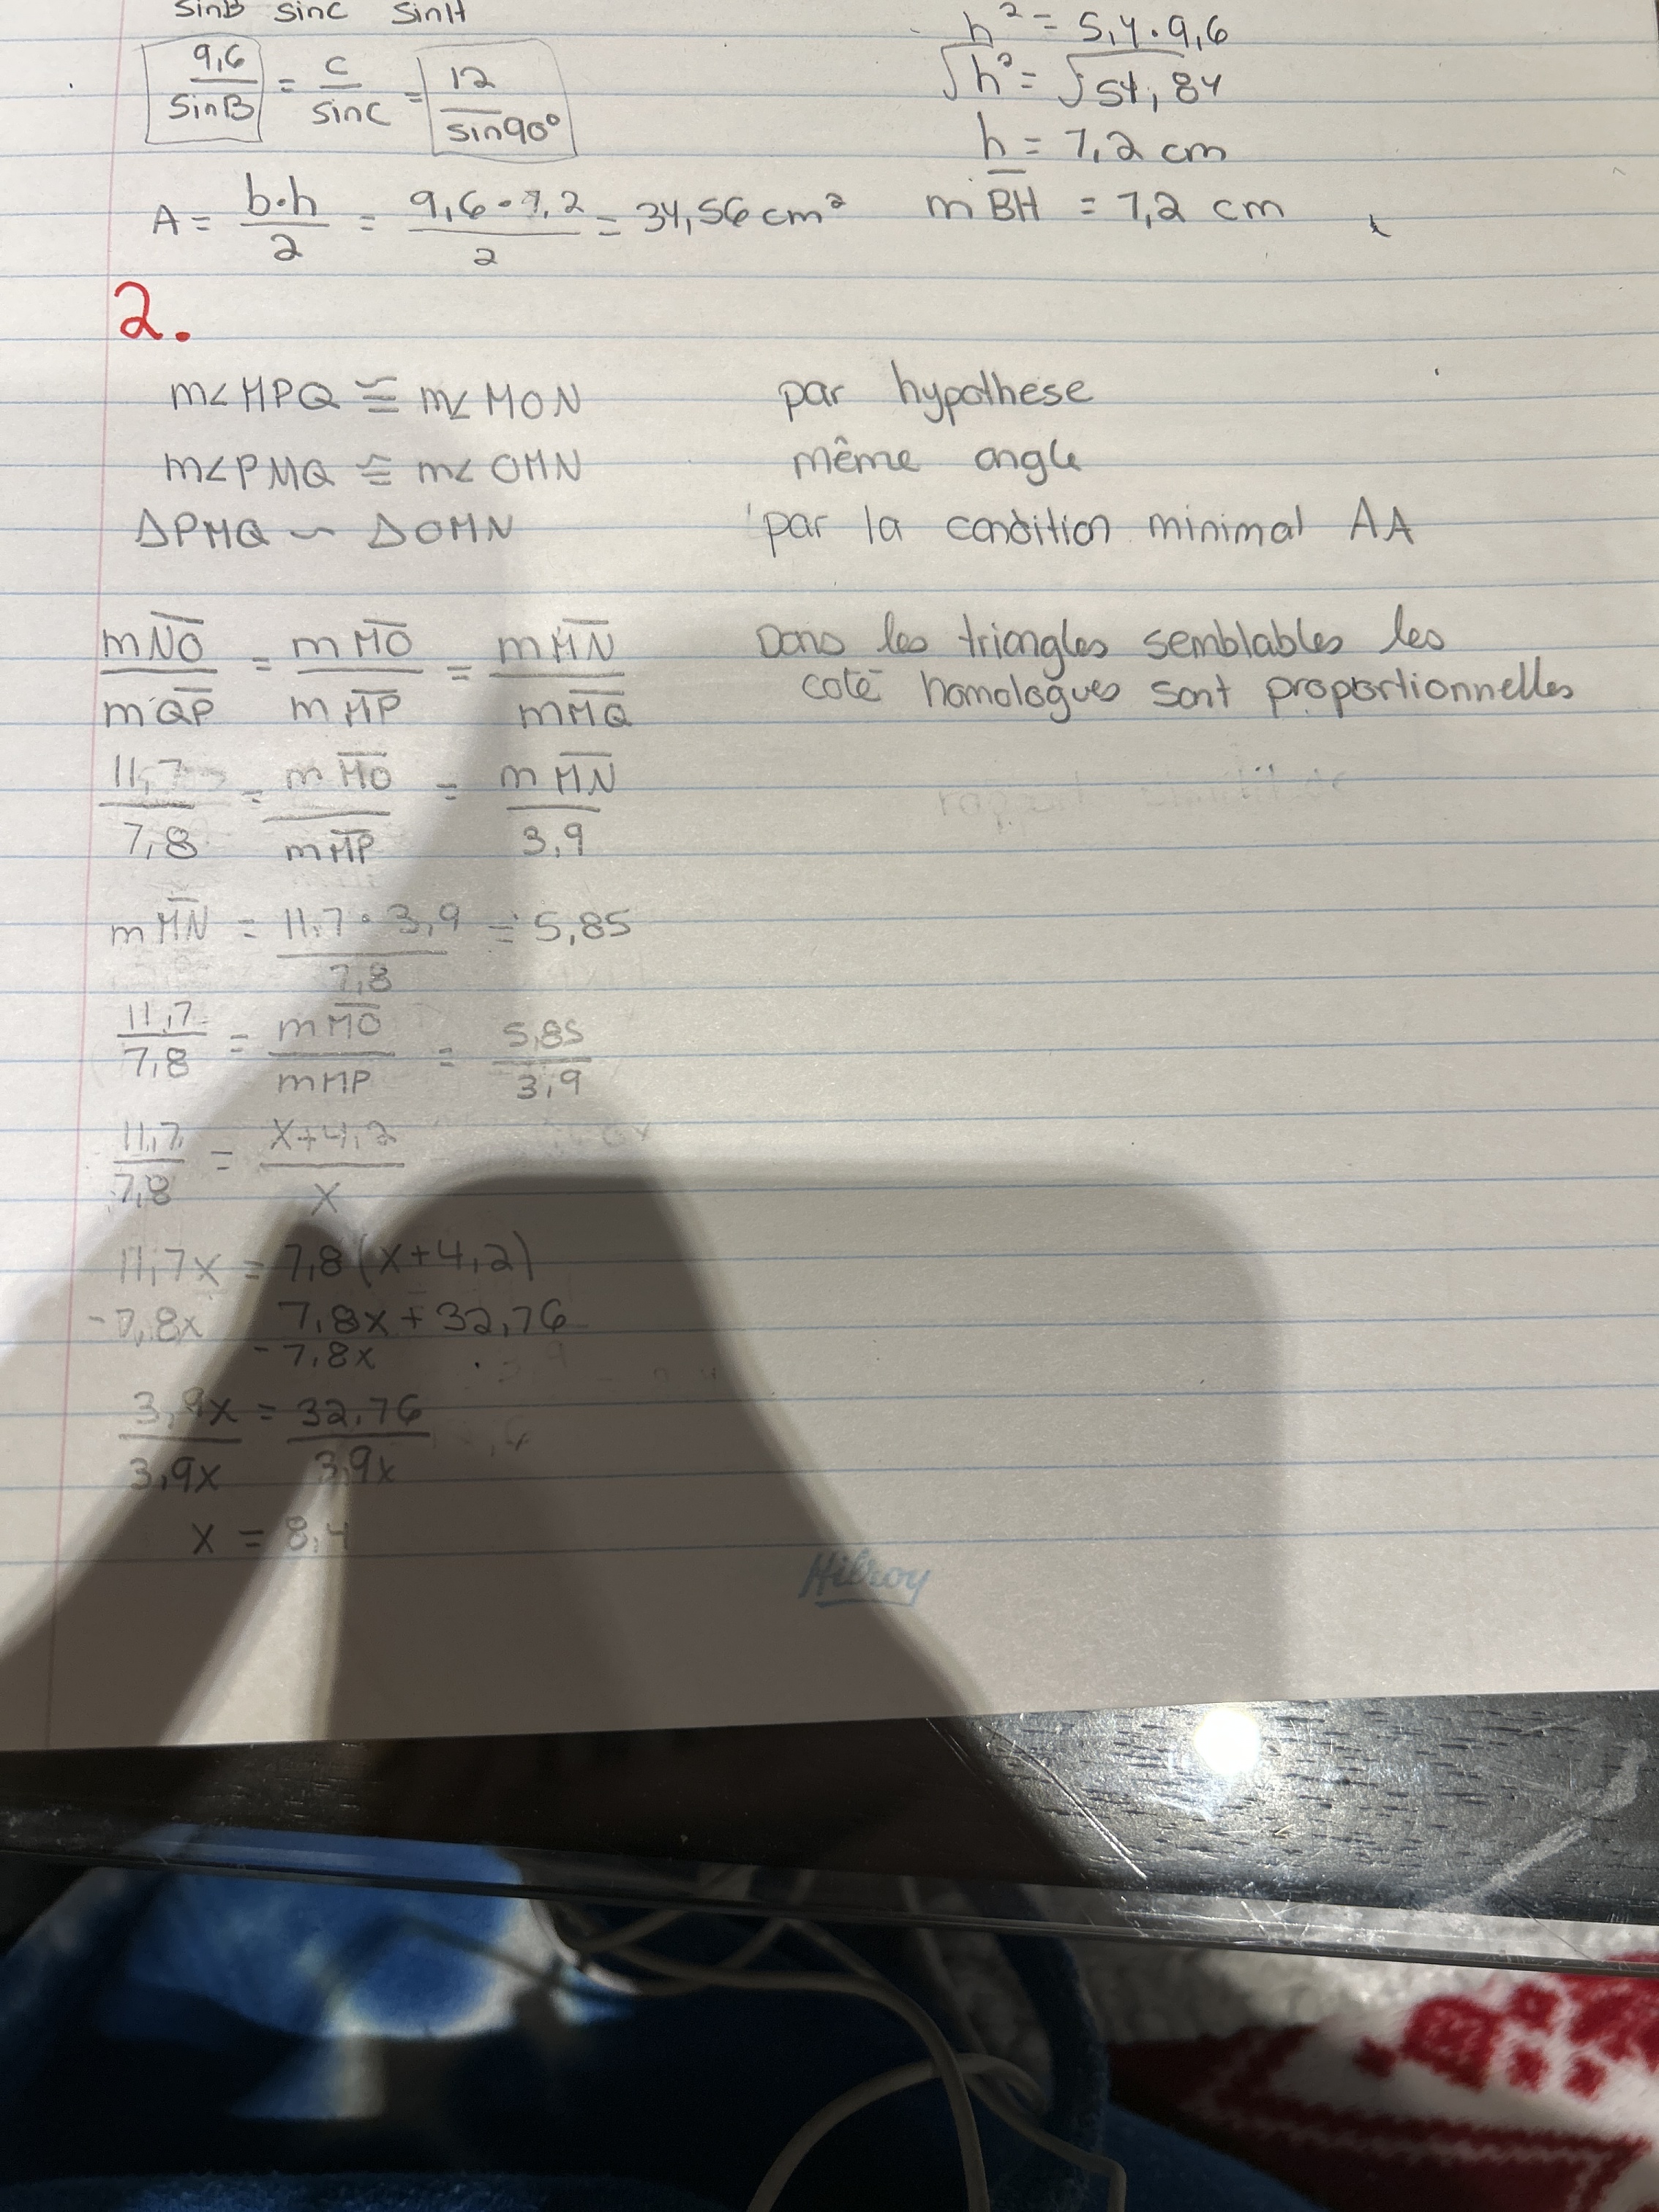 sinB sinC sinH
9,6/sinB = c/sinC = 12/sin90°
A = b·h/2 = 9,6·7,2/2 = 34,56 cm²
h² = 5,4·9,6
√h² = √51,84
h = 7,2 cm
m BH = 7,2 cm
2.
m∠MPQ ≅ m∠MON par hypothese
m∠PMQ ≅ m∠OMN même angle
ΔPMQ ~ ΔOMN par la condition minimal AA
mNO/mQP = mMO/mMP = mMN/mMQ
Dans les triangles semblables les
coté homologues sont proportionnelles
11,7/7,8 = mMO/mMP = mMN/3,9
mMN = 11,7·3,9/7,8 = 5,85
11,7/7,8 = mMO/mMP = 5,85/3,9
11,7/7,8 = x+4,2/x
11,7x = 7,8(x+4,2)
-7,8x 7,8x+32,76
-7,8x
3,9x/3,9x = 32,76/3,9x
x = 8,4
Hilroy